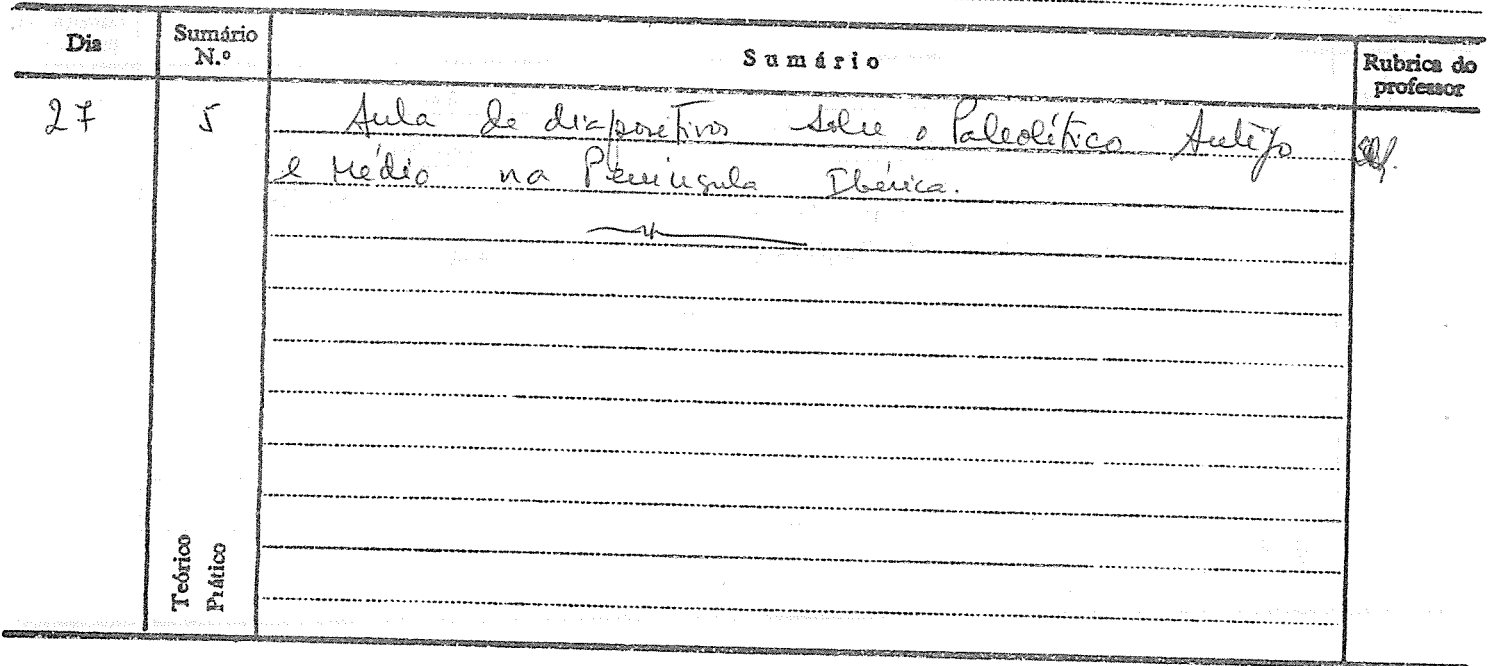 Dia Sumário N.º Sumário Rubrica do professor
27 5 Aula de diapositivos sobre o Paleolítico Antigo
e Médio na Península Ibérica.
Teórico
Prático